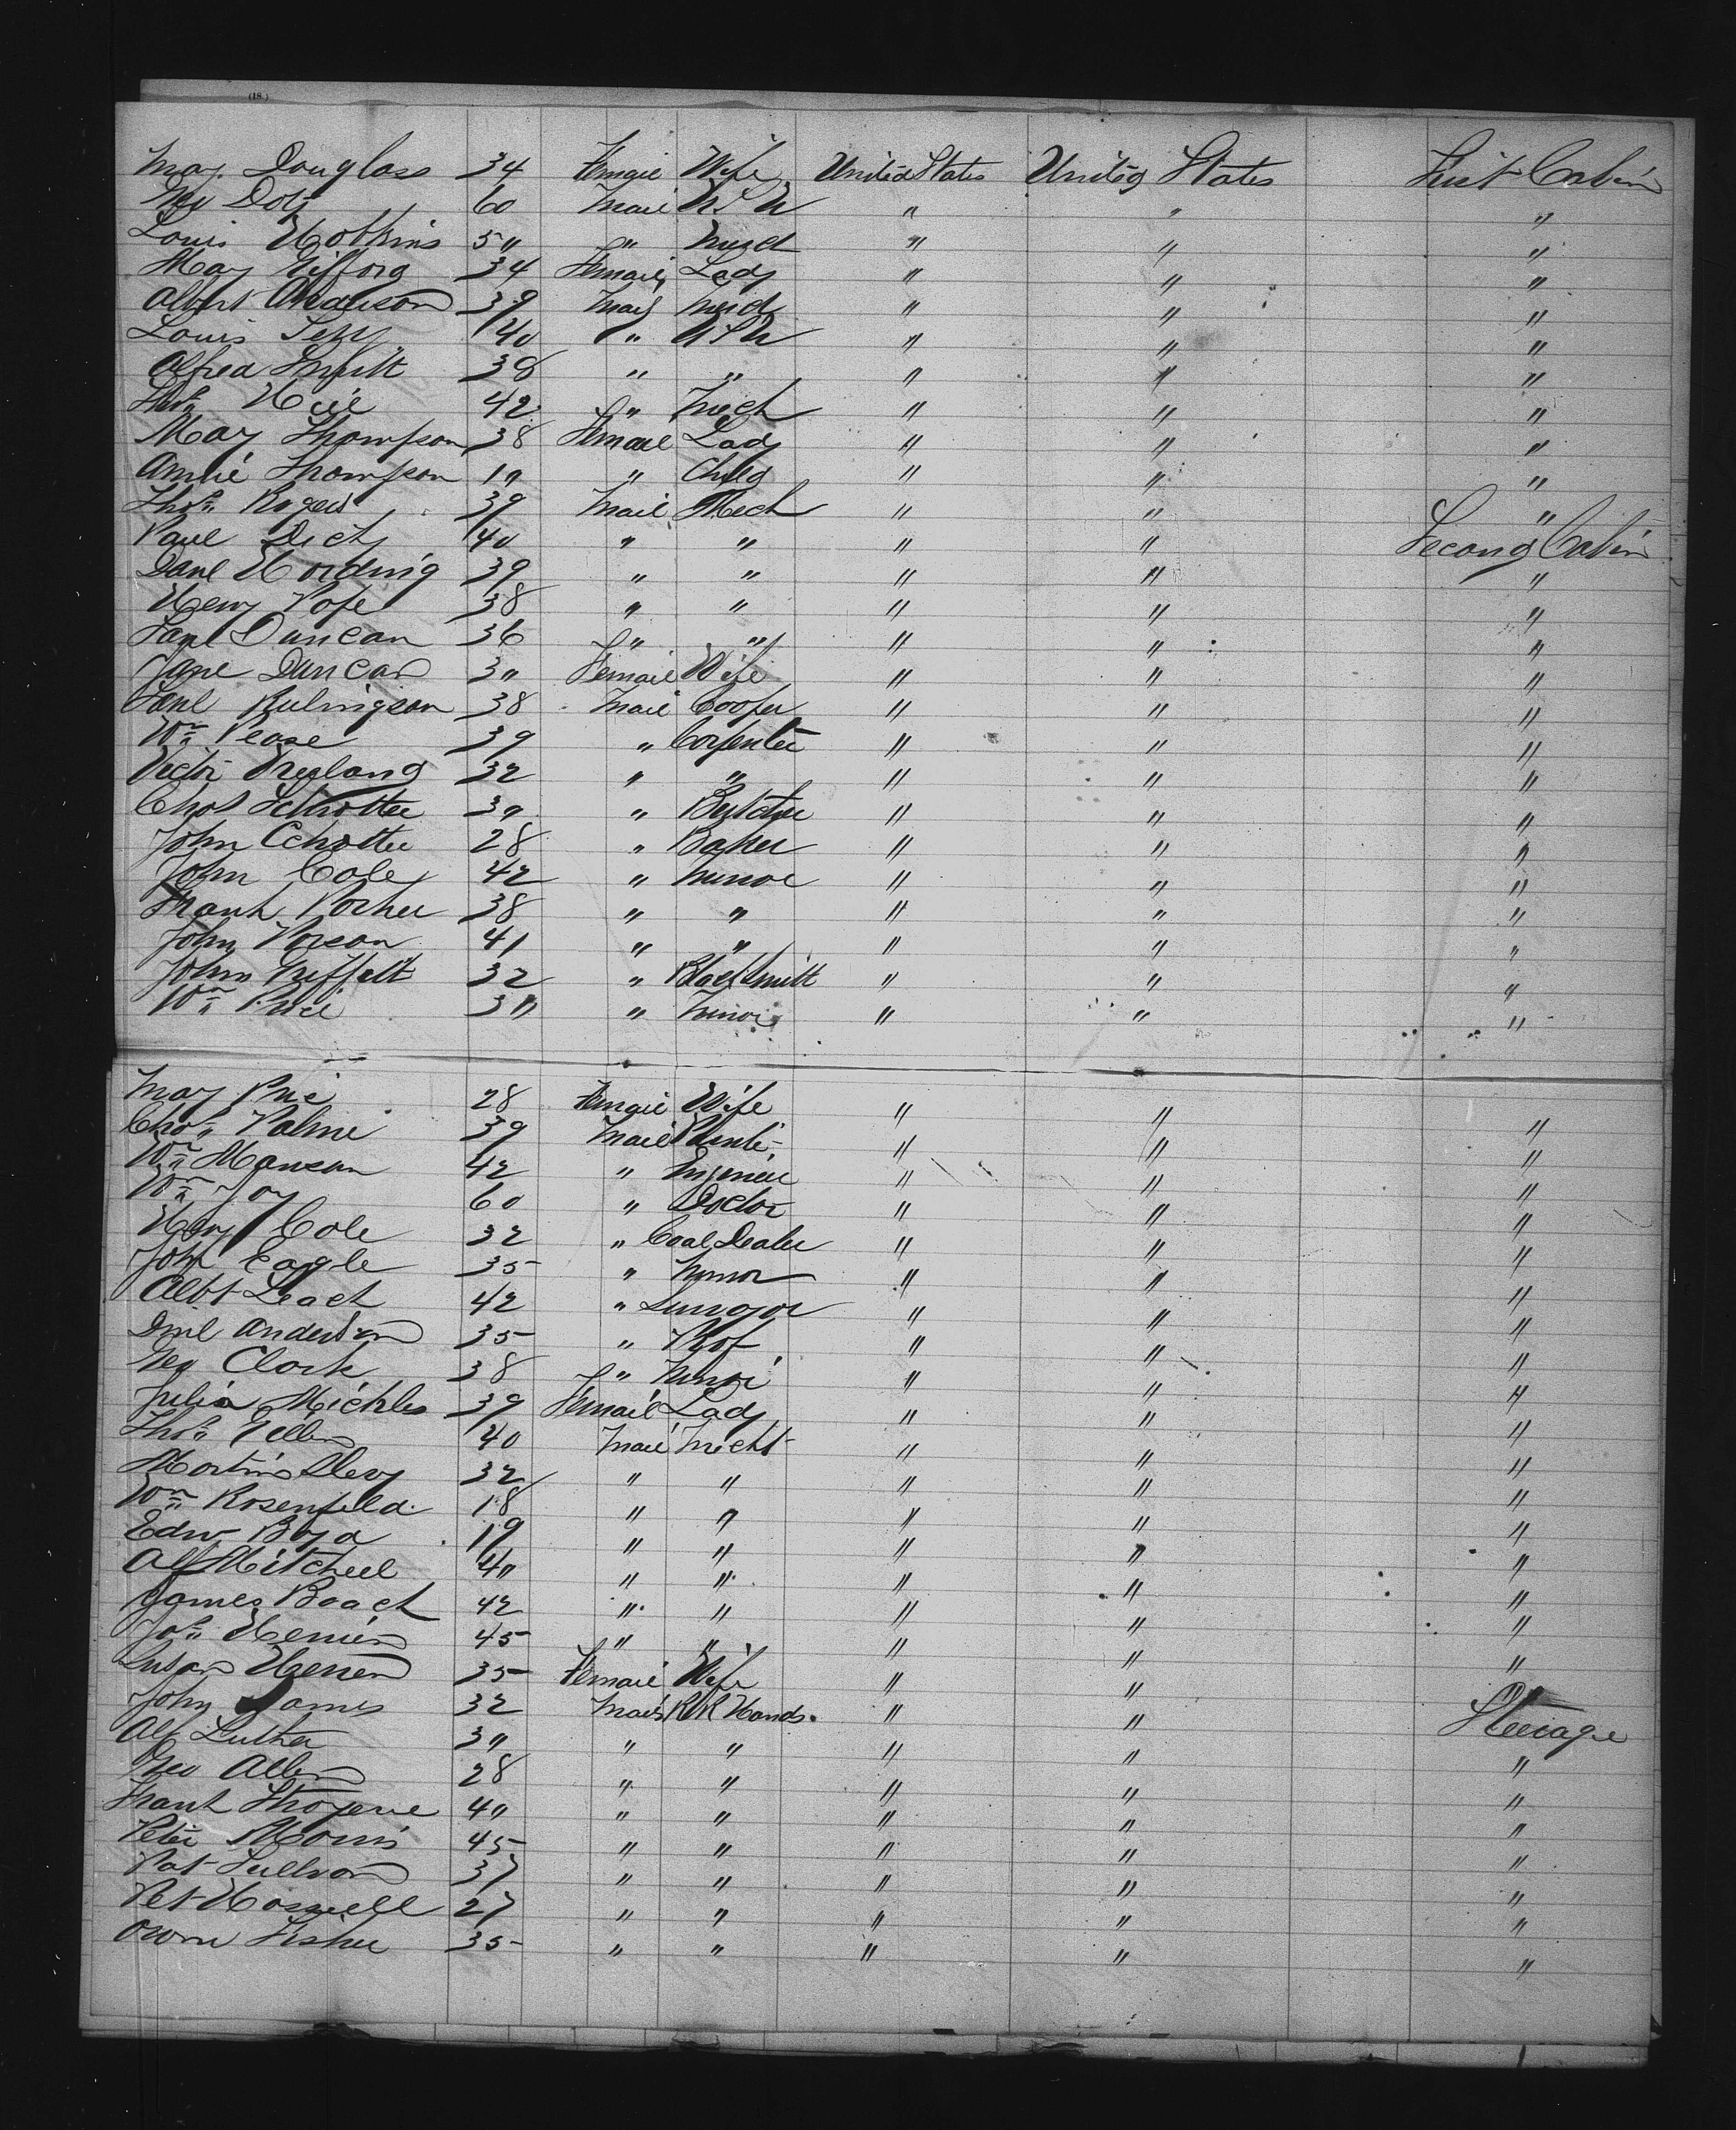 (18.)
May Douglass 34 Female Wife United States United States First Cabin
Doty 60 Male U.S.N " " "
Louis Hopkins 5" " " " "
May Gifford 34 Female Lady " " "
Albert Anderson 39 Male " " "
Louis 40 " U.S.N " " "
Alfred Smith 38 " " " " "
Thos " 42 " Mech " " "
May Thompson 38 Female Lady " " "
Annie Thompson 1" " Child " " "
Thos " Rogers 39 Male Mech " " "
Paul 40 " " " " Second Cabin
Danl Harding 39 " " " " "
Henry Pope 38 " " " " "
Saml Duncan 36 " " " " "
Jane Duncan 3" Female Wife " " "
Saml 38 Male Cooper " " "
Wm " Pease 39 " Carpenter " " "
Victor Vreeland 32 " " " " "
Chas Schotter 3" " Butcher " " "
John Schotter 28 " Baker " " "
John Cole 42 " Minor " " "
Frank Porter 38 " " " " "
John 41 " " " " "
John 32 " Blacksmith " " "
Wm " Price 3" " Minor " " "
May Price 28 Female Wife " " "
Chas " Palmer 39 Male " " "
Wm " Manson 42 " Engineer " " "
Wm " Joy 60 " Doctor " " "
Henry Cole 32 " Coal Dealer " " "
John Eagle 35 " Minor " " "
Albt Leach 42 " Surveyor " " "
Danl Anderson 35 " Prof " " "
Geo Clark 38 " Minor " " "
Julia Michles 39 Female Lady " " "
Thos " 40 Male Mecht " " "
Martin 32 " " " " "
Wm " Rosenfeld 18 " " " " "
Edw Boyd 19 " " " " "
Alf Mitchell 4" " " " " "
James Beach 42 " " " " "
Jos " 45 " " " " "
Susan 35 Female Wife " " "
John James 32 Male RR Hands " " Steerage
Alf Luther 3" " " " " "
Geo Allen 28 " " " " "
Frank 4" " " " " "
Peter Morris 45 " " " " "
Pat Sullivan 37 " " " " "
Pet 27 " " " " "
Owen Fisher 35 " " " " "